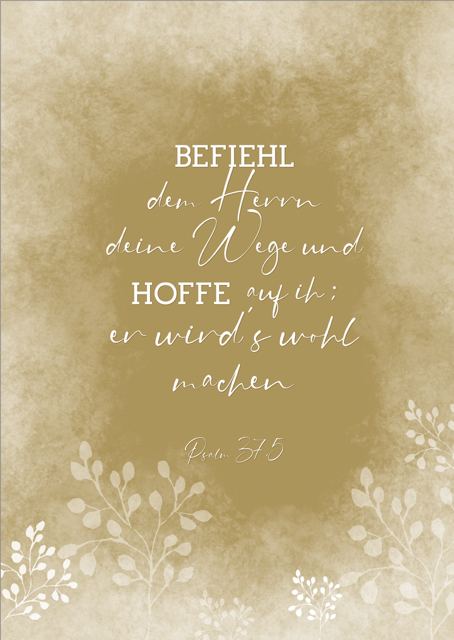 BEFIEHL
dem Herrn
deine Wege und
HOFFE auf ih;
er wird's wohl
machen
Psalm 37.5